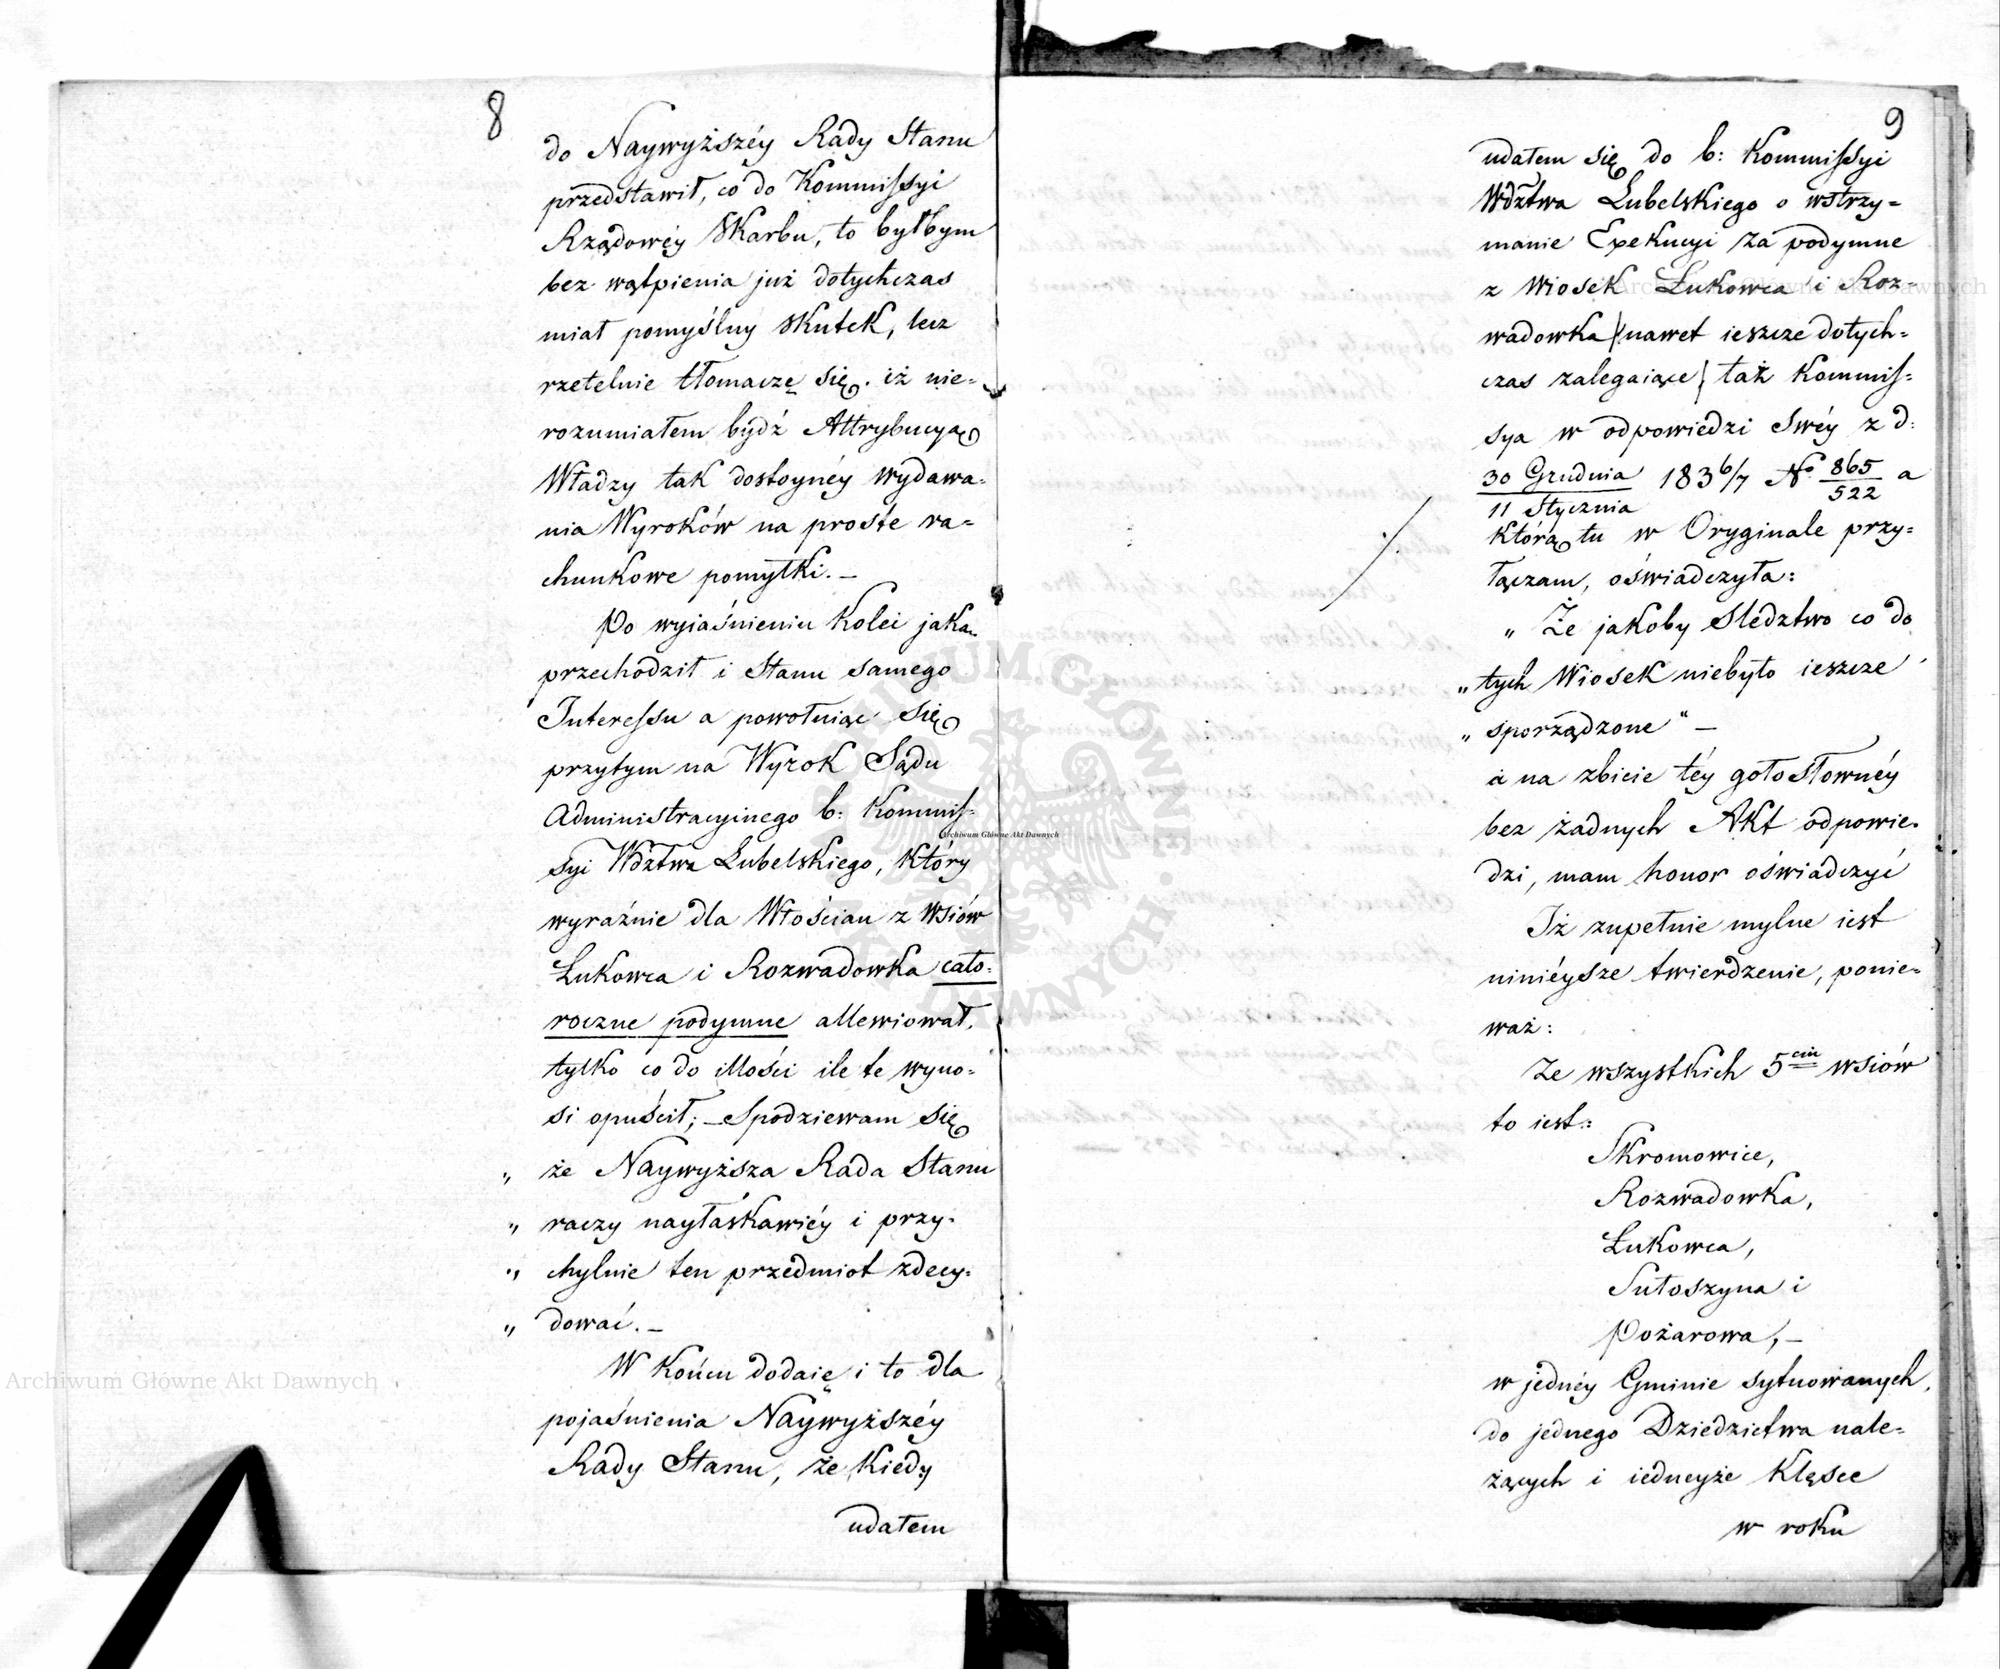 8
do Naywyższéy Rady Stanu
przedstawił, co do Kommissyi
Rządowéy Skarbu, to byłbym
bez wątpienia już dotychczas
miał pomyślny skutek, lecz
rzetelnie tłomaczę się. iż nie-
rozumiałem bydź Attrybucyą
Władzy tak dostoynéy wydawa-
nia Wyroków na proste ra-
chunkowe pomyłki. –
Po wyiaśnieniu Kolei jaką
przechodził i Stanu samego
Interessu a powołuiąc się
przytym na Wyrok Sądu
Administracyinego b: Kommis-
syi Wdztwa Lubelskiego, który
wyraźnie dla Włościan z wsiów
Łukowca i Rozwadowka cało-
roczne podymne allewiował,
tylko co do illości ile te wyno-
si opuścił; – Spodziewam się
„ że Naywyższa Rada Stanu
„ raczy nayłaskawiéy i przy-
„ chylnie ten przedmiot zdecy-
„ dować. –
W Końcu dodaię i to dla
pojaśnienia Naywyższéy
Rady Stanu, że Kiedy
udałem
9
udałem się do b: Kommissyi
Wdztwa Lubelskiego o wstrzy-
manie Exekucyi za podymne
z Wiosek Łukowca i Roz-
wadowka / nawet ieszcze dotych-
czas zalegaiące / taż Kommis-
sya w odpowiedzi Swéy z d:
30 Grudnia 1836/7 No 865 a
11 Stycznia 522
którą tu w Oryginale przy-
łączam, oświadczyła:
„ Że jakoby Sledztwo co do
„ tych Wiosek niebyło ieszcze
„ sporządzone " –
a na zbicie téy gołosłownéy
bez żadnych Akt odpowie-
dzi, mam honor oświadczyć
Iż zupełnie mylne iest
niniéysze twierdzenie, ponie-
waż:
Ze wszystkich 5ciu wsiów
to iest:
Skromowice,
Rozwadowka,
Łukowca,
Sułoszyna i
Pożarowa, –
w jednéy Gminie sytuowanych,
do jednego Dziedzictwa nale-
żących i iedneyże Klęsce
w roku
Archiwum Główne Akt Dawnych
Archiwum Główne Akt Dawnych
Archiwum Główne Akt Dawnych
ARCHIWUM GŁÓWNE AKT DAWNYCH